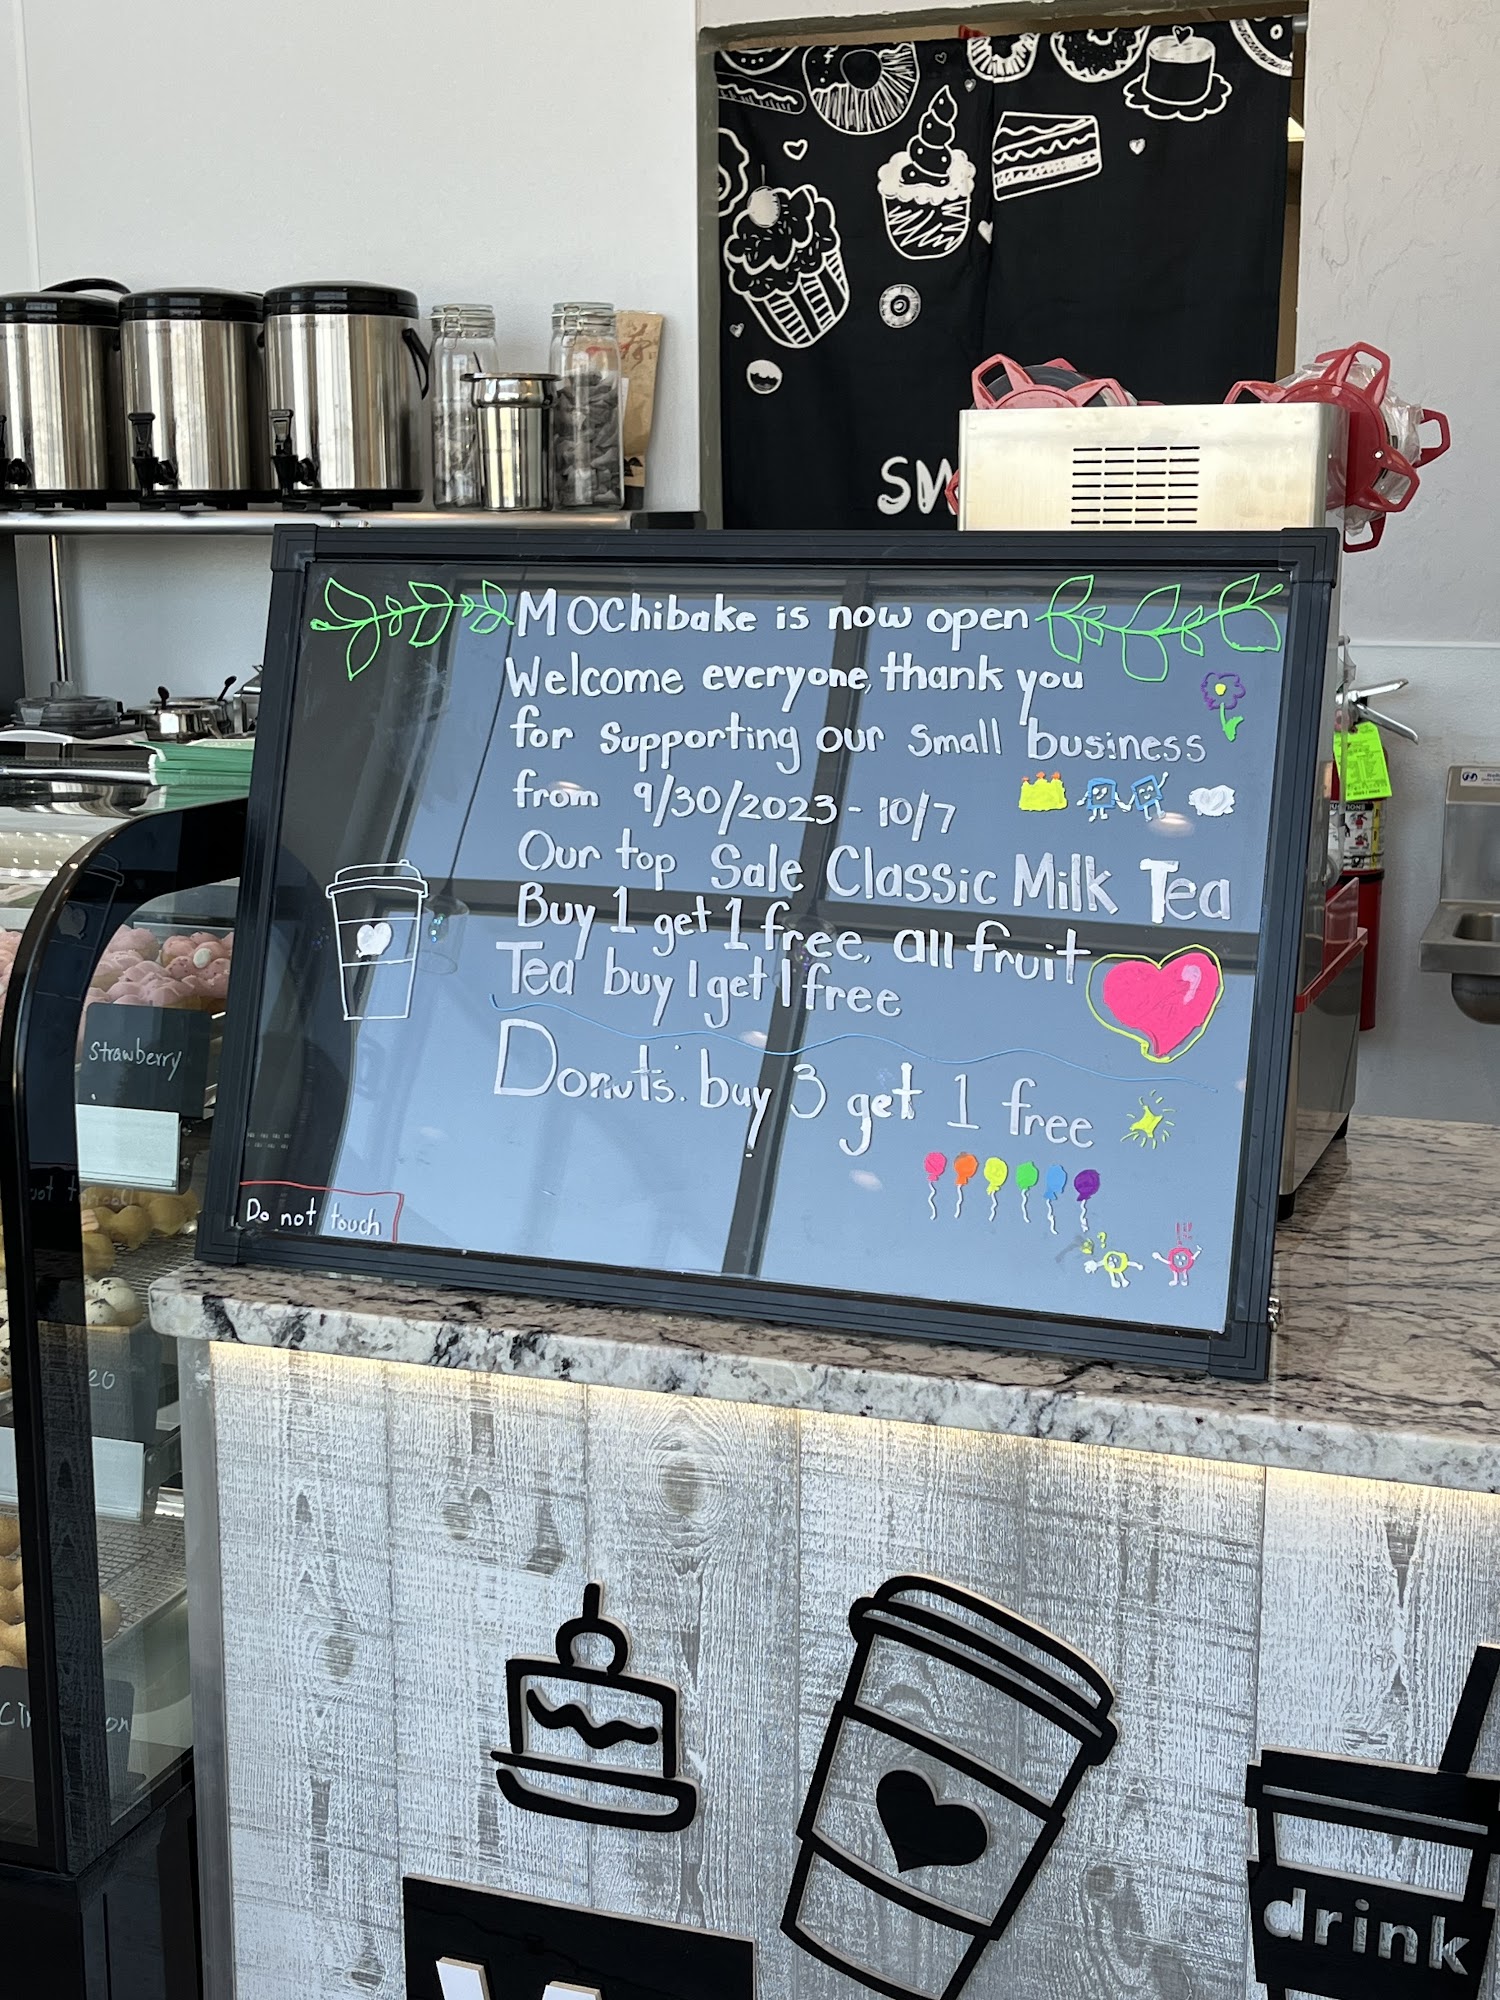 SW
MOChibake is now open
Welcome everyone, thank you
for supporting our small business
from 9/30/2023 - 10/7
Our top Sale Classic Milk Tea
Buy 1 get 1 free, all fruit
Tea buy 1 get 1 free
Donuts. buy 3 get 1 free
Do not touch
strawberry
drink